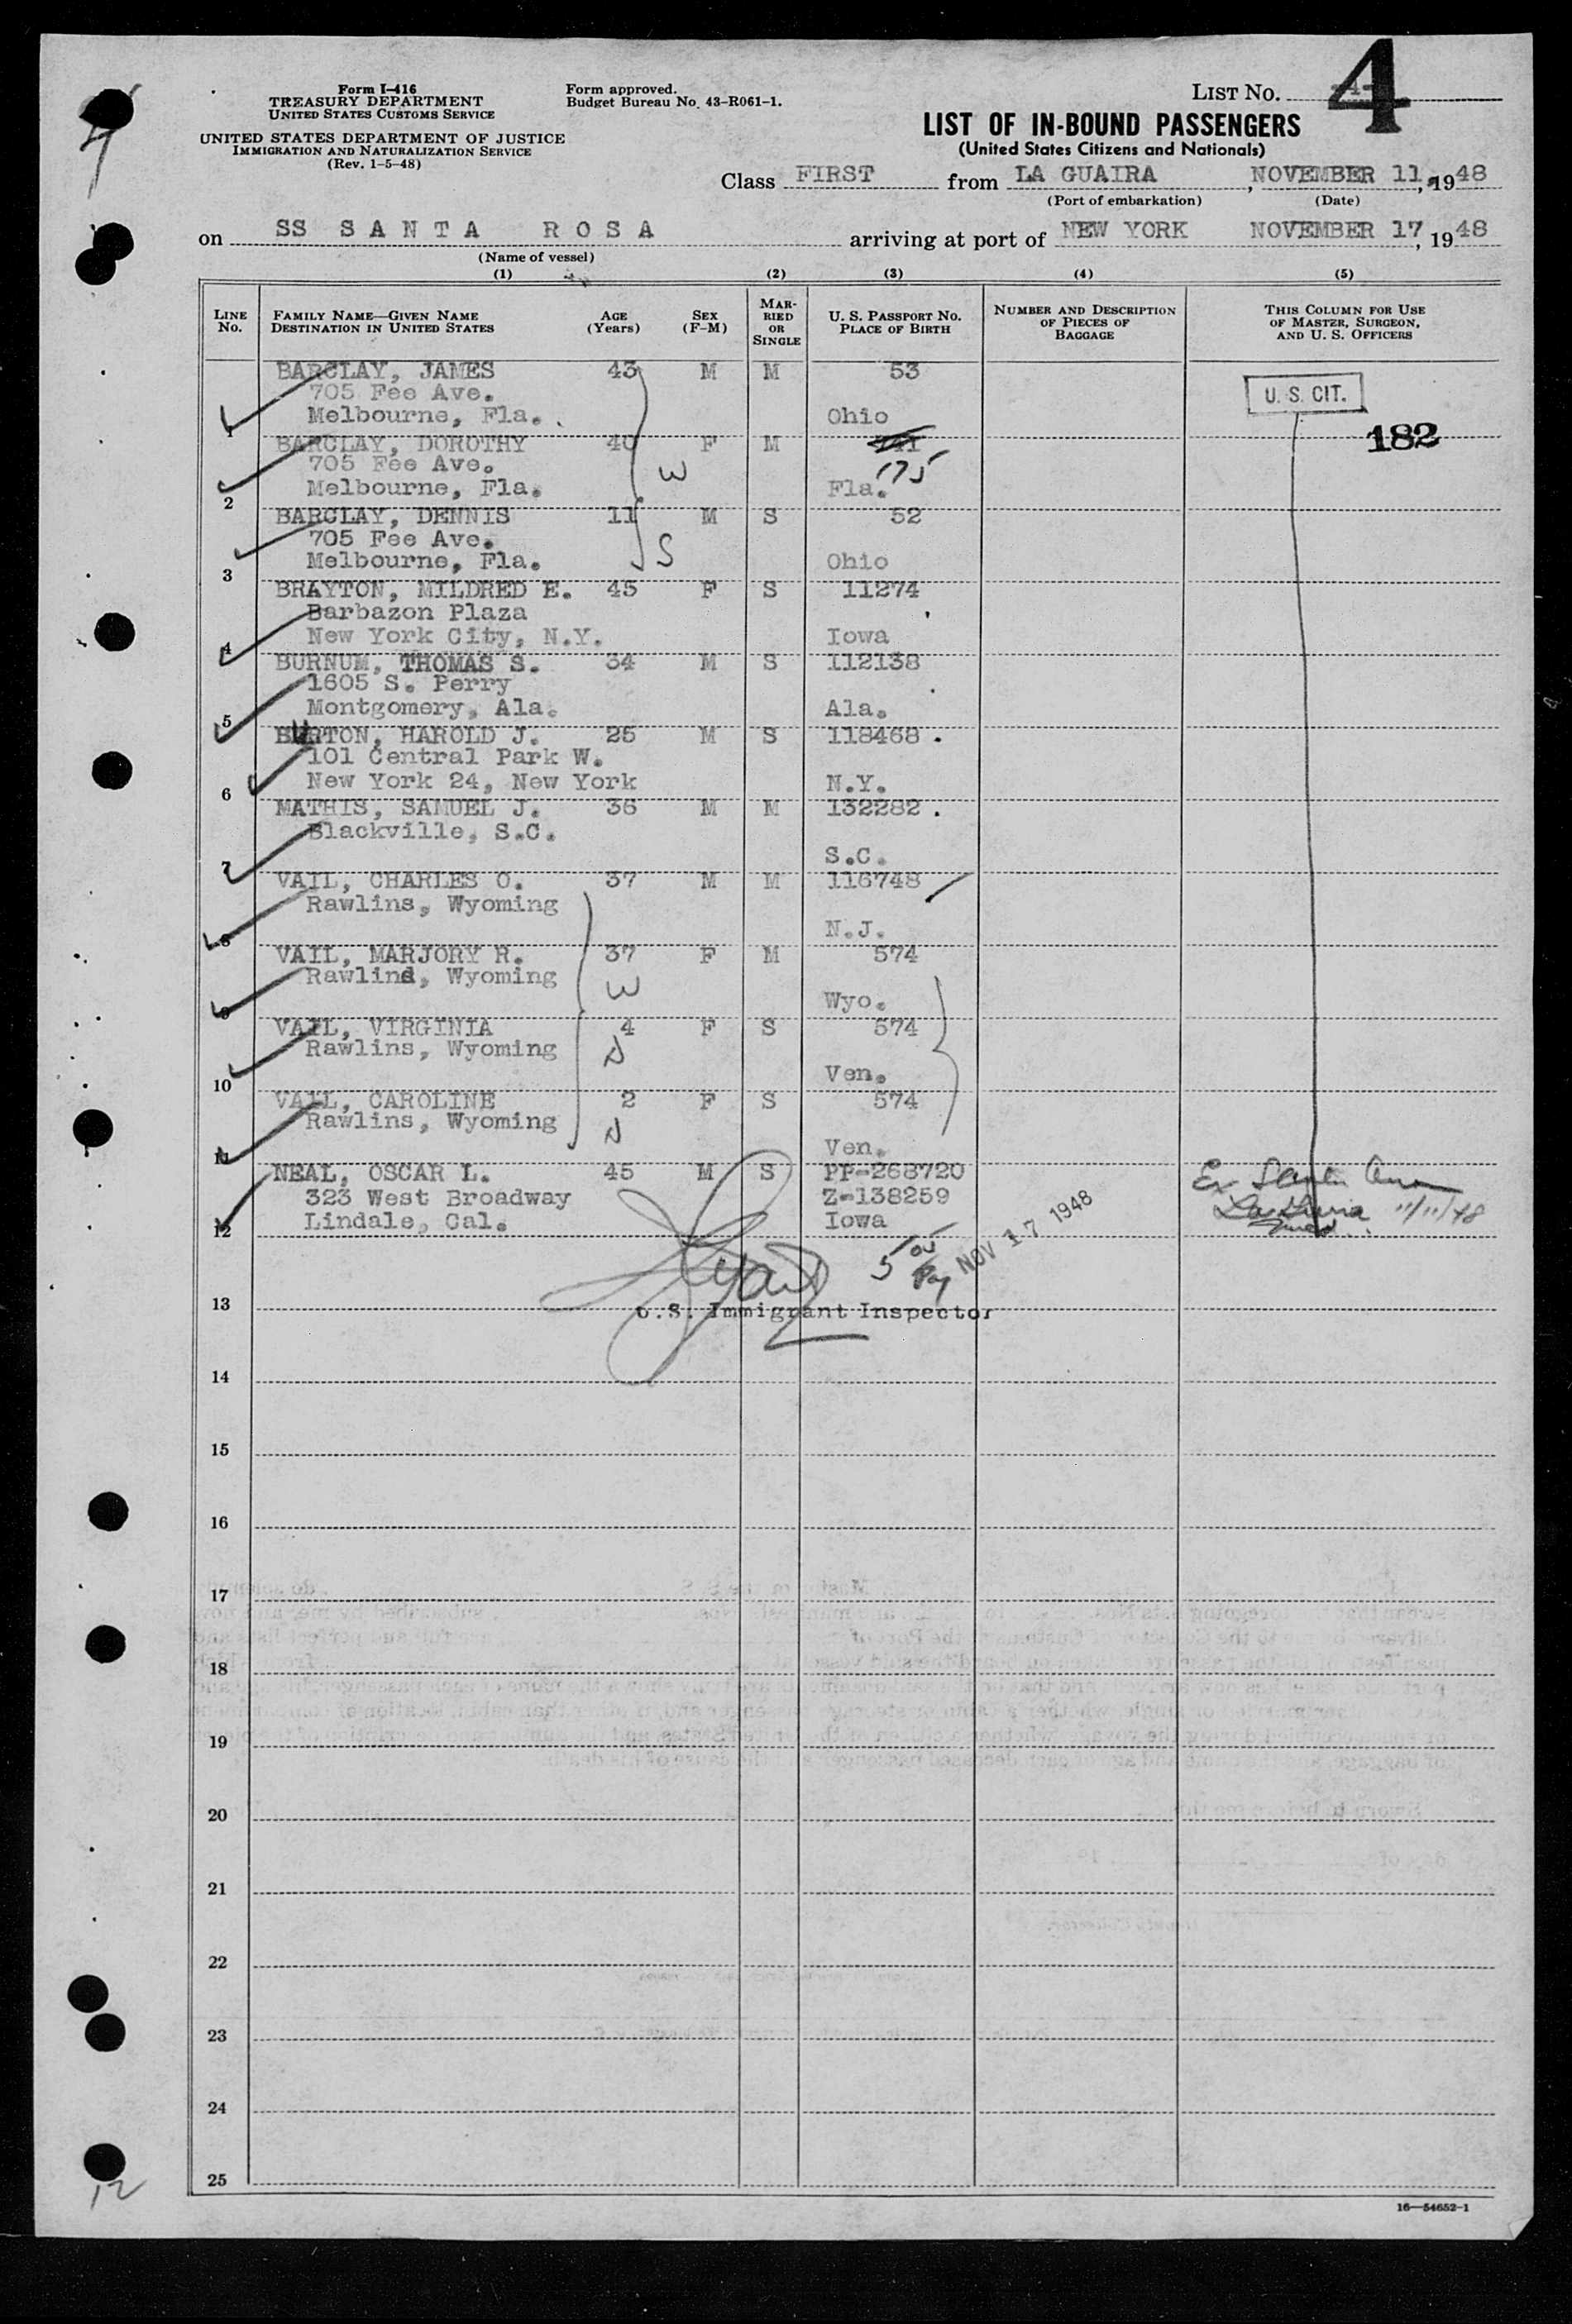 4
Form I-416
TREASURY DEPARTMENT
UNITED STATES CUSTOMS SERVICE
UNITED STATES DEPARTMENT OF JUSTICE
IMMIGRATION AND NATURALIZATION SERVICE
(Rev. 1-5-48)
Form approved.
Budget Bureau No. 43-R061-1.
LIST NO. 4
LIST OF IN-BOUND PASSENGERS
(United States Citizens and Nationals)
Class FIRST from LA GUAIRA, NOVEMBER 11, 1948
(Port of embarkation) (Date)
on SS SANTA ROSA arriving at port of NEW YORK NOVEMBER 17, 1948
(Name of vessel)
(1) (2) (3) (4) (5)
LINE No. FAMILY NAME—GIVEN NAME DESTINATION IN UNITED STATES AGE (Years) SEX (F-M) MARRIED OR SINGLE U. S. PASSPORT NO. PLACE OF BIRTH NUMBER AND DESCRIPTION OF PIECES OF BAGGAGE THIS COLUMN FOR USE OF MASTER, SURGEON, AND U. S. OFFICERS
BARCLAY, JAMES 43 M M 53
705 Fee Ave. U. S. CIT.
1 Melbourne, Fla. Ohio
182
BARCLAY, DOROTHY 40 F M 141
705 Fee Ave. W 175
2 Melbourne, Fla. Fla.
BARCLAY, DENNIS 11 M S 52
705 Fee Ave. S
3 Melbourne, Fla. Ohio
BRAYTON, MILDRED E. 45 F S 11274
Barbazon Plaza
4 New York City, N.Y. Iowa
BURNUM, THOMAS S. 34 M S 112138
1605 S. Perry
5 Montgomery, Ala. Ala.
BURTON, HAROLD J. 25 M S 118468
101 Central Park W.
6 New York 24, New York N.Y.
MATHIS, SAMUEL J. 36 M M 132282
Blackville, S.C.
7 S.C.
VAIL, CHARLES O. 37 M M 116748
Rawlins, Wyoming
8 N.J.
VAIL, MARJORY R. 37 F M 574
Rawlind, Wyoming W
9 Wyo.
VAIL, VIRGINIA 4 F S 574
Rawlins, Wyoming D
10 Ven.
VAIL, CAROLINE 2 F S 574
Rawlins, Wyoming D
11 Ven.
NEAL, OSCAR L. 45 M S PP-268720
323 West Broadway Z-138259
12 Lindale, Cal. Iowa 11/11/48
NOV 17 1948
13 U.S. Immigrant Inspector
14
15
16
17
18
19
20
21
22
23
24
25
12
16—54652-1